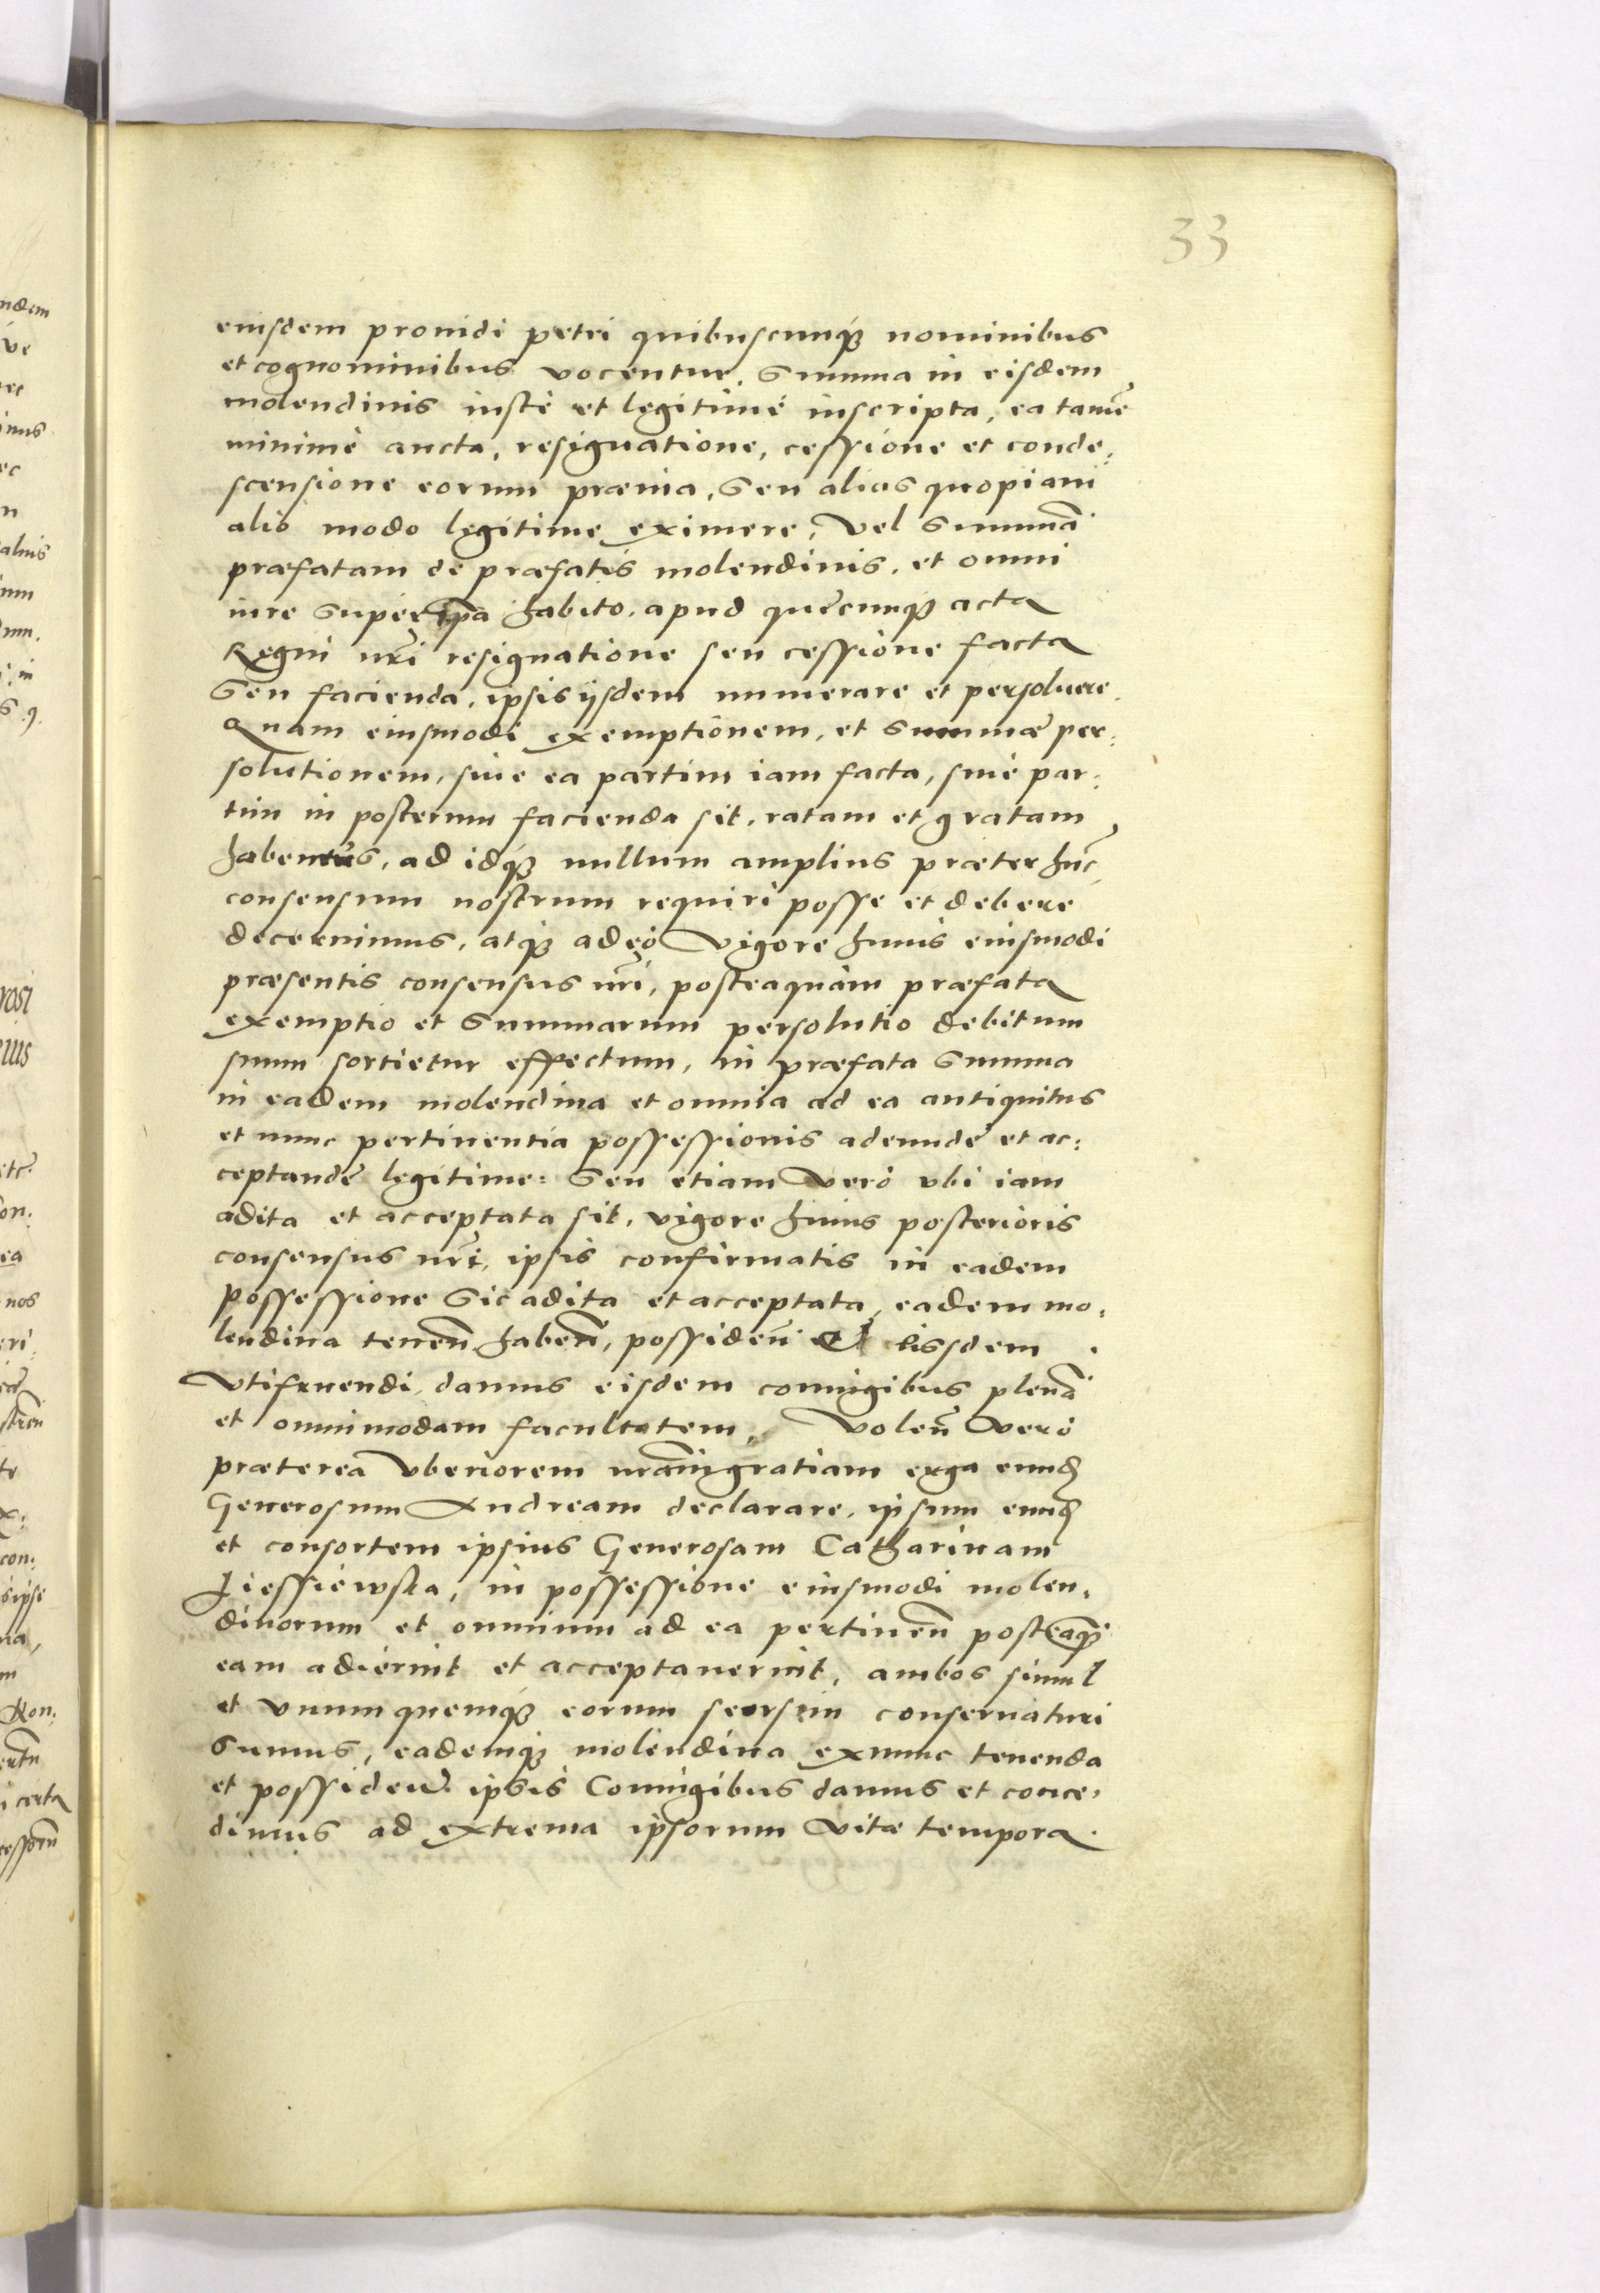 33
eiusdem prouidi petri quibuscunq3 nominibus
et cognominibus vocentur, Summa in eisdem
molendinis iuste et legitime inscripta, ea tamē
minime aucta, resignatione, cessione et conde:
scensione eorum præuia, Seu alias quopiam
alio modo legitime eximere, Vel Summā
præfatam de præfatis molendinis, et omni
iure super ipa habito, apud quecunq3 acta
Regni nrī resignatione seu cessione facta
Seu facienda, ipsis ijsdem numerare et persoluere.
Quam eiusmodi exemptionem, et Summæ per:
solutionem, siue ea partim iam facta, siue par:
tim in posterum facienda sit, ratam et gratam
habentes, ad idq3 nullum amplius præter hūc
consensum nostrum requiri posse et debere
decernimus, atq3 adeo Vigore huius eiusmodi
præsentis consensus nrī, posteaquam præfata
exemptio et Summarum persolutio debitum
suum sortietur effectum, in præfata Summa
in eadem molendina et omnia ad ea antiquitus
et nunc pertinentia possessionis adeundę et ac:
ceptandę legitime: Seu etiam Vero vbi iam
adita et acceptata sit, vigore huius posterioris
consensus nrī, ipsis confirmatis in eadem
possessione Sic adita et acceptata, eadem mo:
lendina teneñ habeñ, possideñ et iissdem
Vtifruendi, damus eisdem coniugibus plenā
et omnimodam facultatem. Voleñ Vero
præterea Vberiorem nrām gratiam erga eund
Generosum Andream declarare, ipsum eund
et consortem ipsius Generosam Catharinam
in possessione eiusmodi molen:
dinorum et omnium ad ea pertineñ posteaq3
eam adierint et acceptauerint, ambos simul
et Vnumquemq3 eorum seorsim conseruaturi
Sumus, eademq3 molendina exnunc tenenda
et possideñ ipsis Coniugibus damus et conce:
dimus ad extrema ipsorum Vitæ tempora.